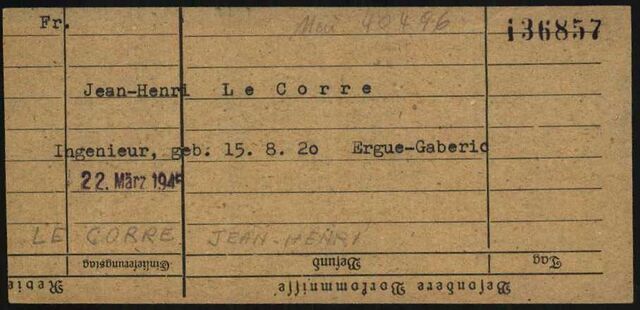 Fr.
Mau 40496
136857
Jean-Henri Le Corre
Ingenieur, geb. 15. 8. 20 Ergue-Gaberic
22. März 1945
LE CORRE JEAN-HENRI
Einlieferungstag Befund Tag
Besondere Vorkommnisse